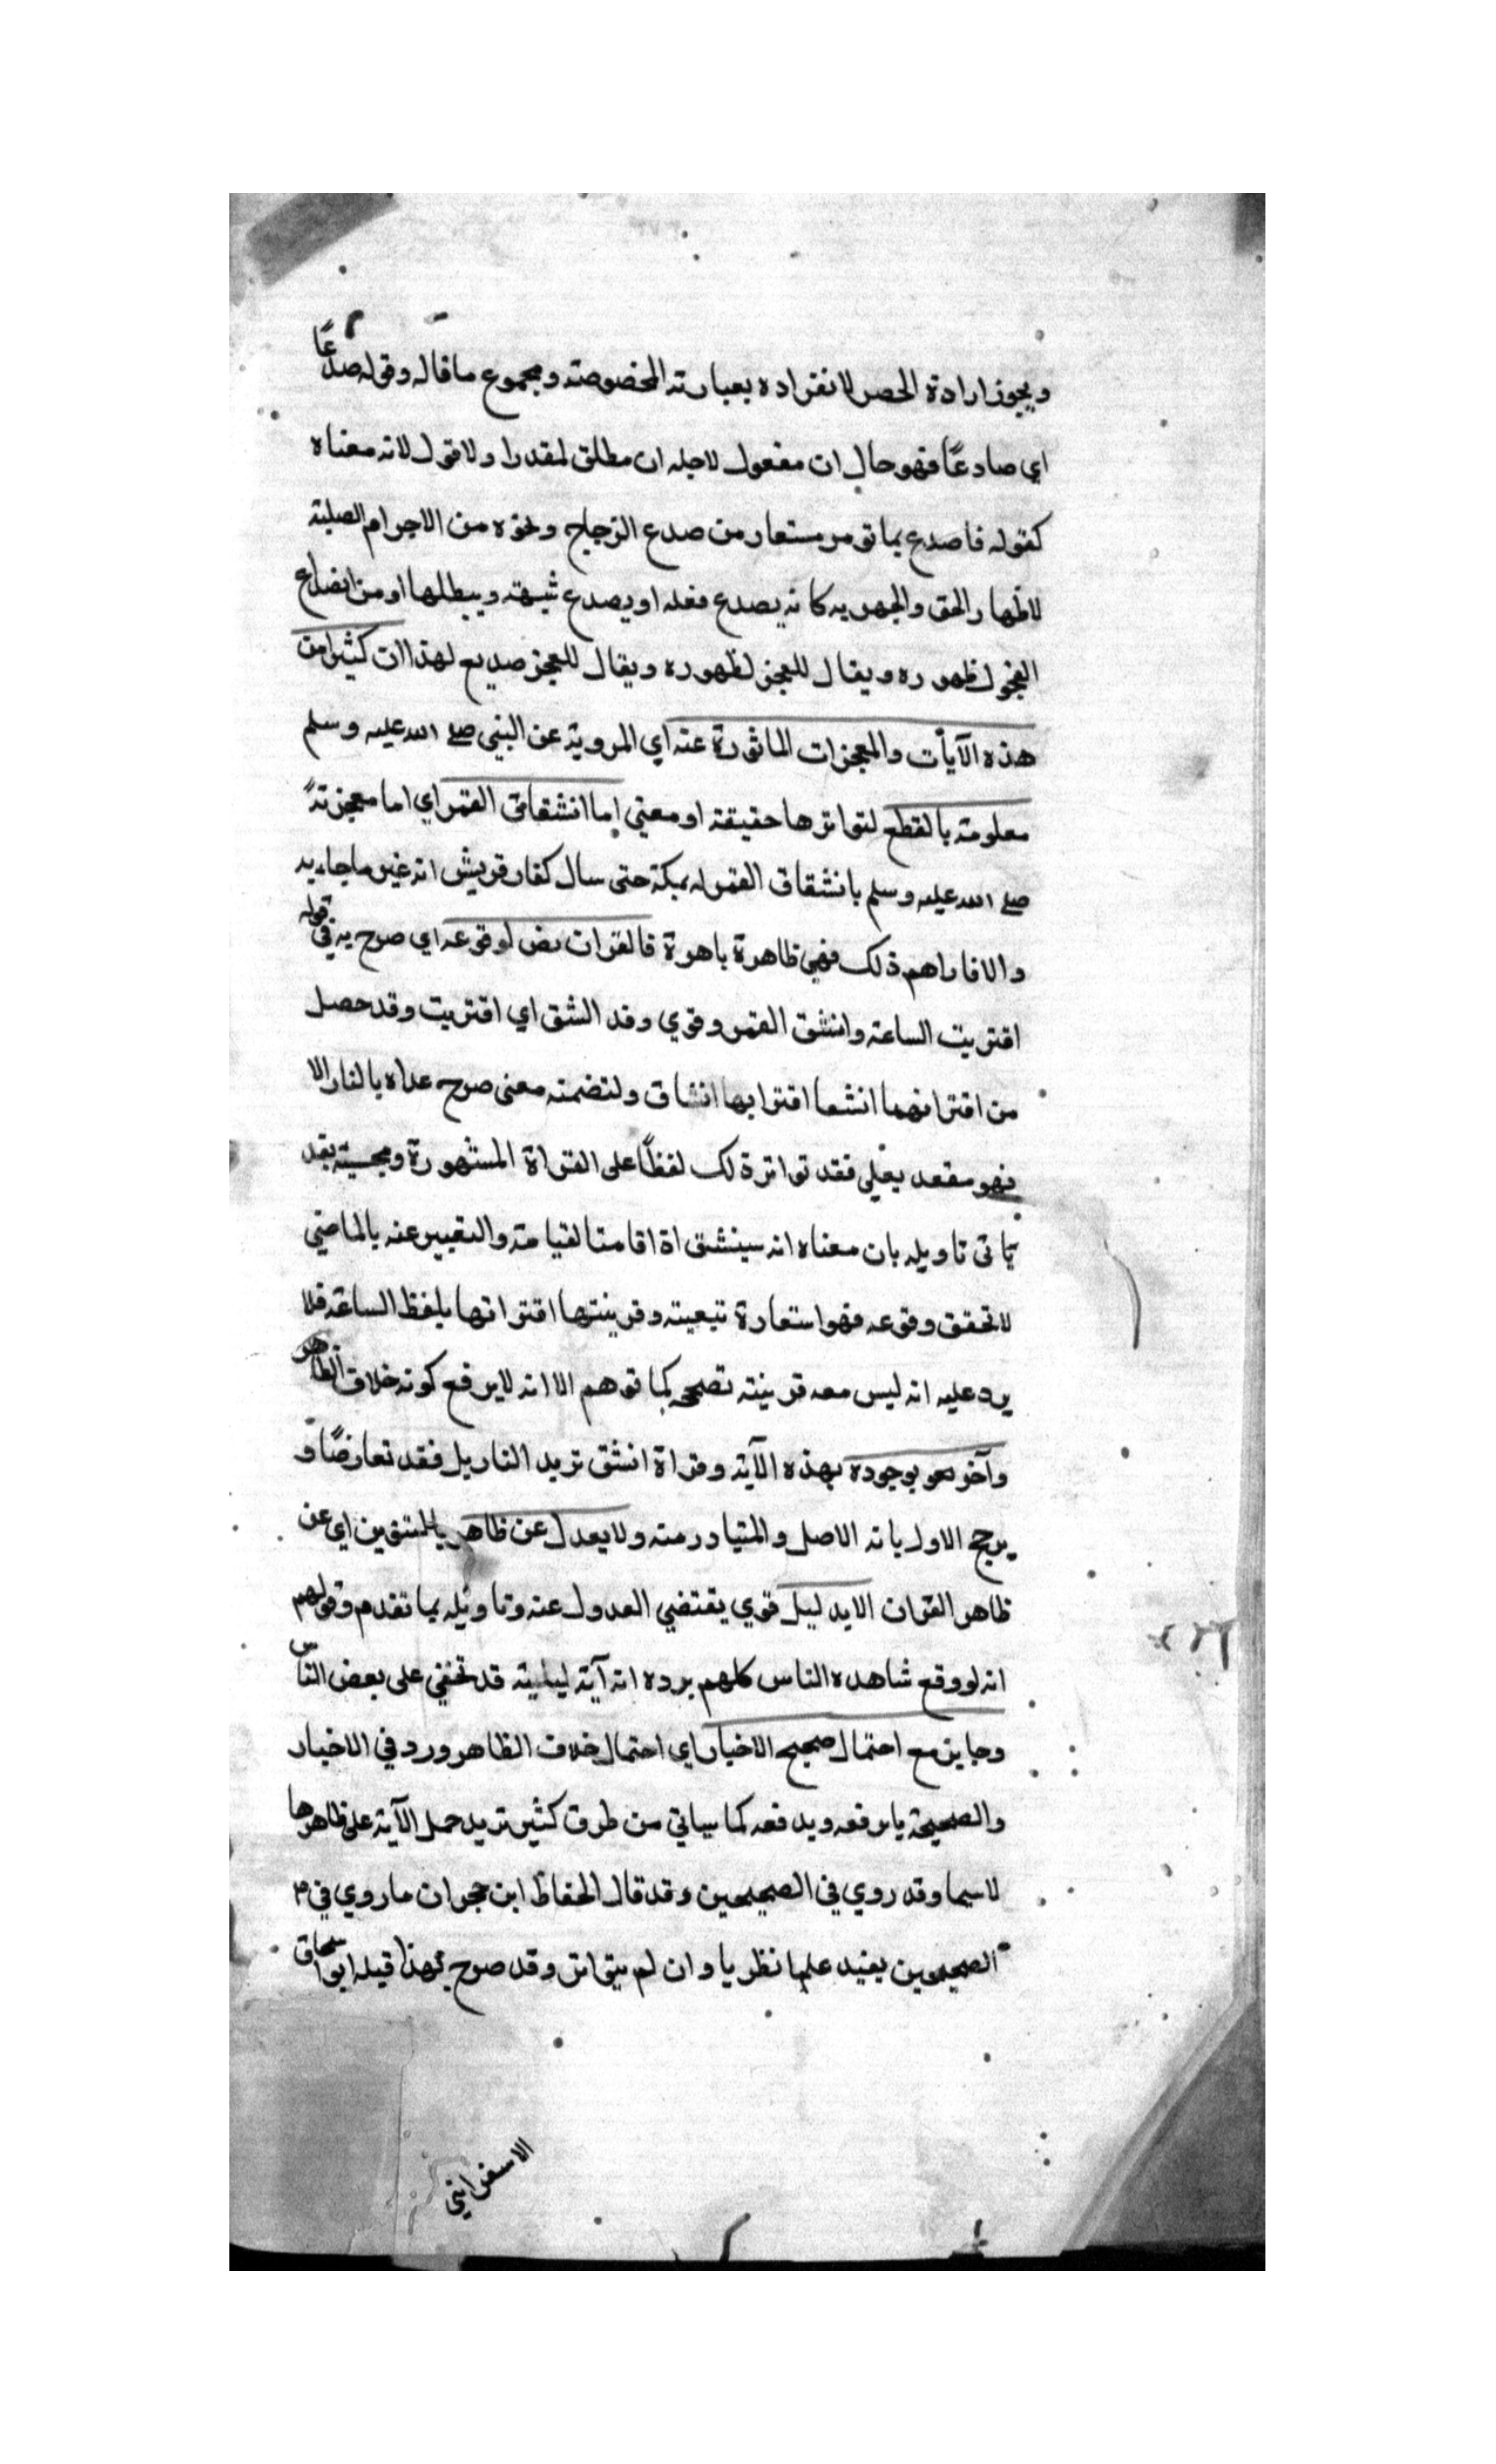 ويجوز ارادة الحصر لانفراده بعبارته المخصوصة ومجموع ما قاله وقوله صدعًا
اي صادعًا فهو حال ان مفعول لاجله ان مطلق لمقدرا ولا قول لانه معناه
كقوله فاصدع بما تومر مستعار من صدع الزجاج ونحوه من الاجرام الصلبة
لاظهار الحق والجهر به كانه يصدع فعله او يصدع شبهته ويبطلها او من انصداع
الفجر لظهوره ويقال للعجز لظهوره ويقال للعجز صديع لهذا ان كثيرا من
هذه الآيات والمعجزات الماثورة عنه اي المروية عن النبي صلي الله عليه وسلم
معلومة بالقطع لتواترها حقيقة او معني اما انشقاق القمر اي اما معجزتهً
صلي الله عليه وسلم بانشقاق القمر له بمكة حتى سال كفار قريش انه غير ما جاء به
والا فاراهم ذلك فهي ظاهرة باهرة فالقران نص لوقوعه اي صرح به في قوله
اقتربت الساعة وانشق القمر وقري وقد انشق اي اقتربت وقد حصل
من اقترانهما انشعا اقترابها انشاق ولتضمنه معنى صرح عداه بالنار الا
فهو مقعد بعلي فقد تواتر ذلك لفظًا على القراة المشهورة ومجيئه بعد
ياتى تاويله بان معناه انه سينشق اذا قامت القيامة والتعبير عنه بالماضي
لا تحقق وقوعه فهو استعارة تبعيته وقرينتها اقترانها بلفظ الساعة فلا
يرد عليه انه ليس معه قرينته تصححه كما توهم الا انه لا يرفع كونه خلاف الظاهر
وآخر هو بوجوده بهذه الآية وقراة انشق تريد التاريل فقد تعارضًا و
يرجح الاول بانه الاصل والمتبادر منه ولا يعدل عن ظاهر بالمتقين اي عن
ظاهر القران الا بدليل قوي يقتضي العدول عنه وتاويله بما تقدم وقولهم
انه لو وقع شاهده الناس كلهم برده انه آية ليلية قد تخفي على بعض الناس
وجاين مع احتمال صحيح الاخبار اي احتمال خلاف الظاهر ورد في الاخبار
والصحيحة يا يرفعه ويدفعه كما سياتي من طرق كثير تريد حمل الآية على ظاهرها
لاسيما وقد روي في الصحيحين وقد قال الحفاظ ابن حجر ان ما روي في
الصحيحين يفيد علما نظريا وان لم يتواتر وقد صرح بهذا قبله ابو اسحاق
الاسفرايني